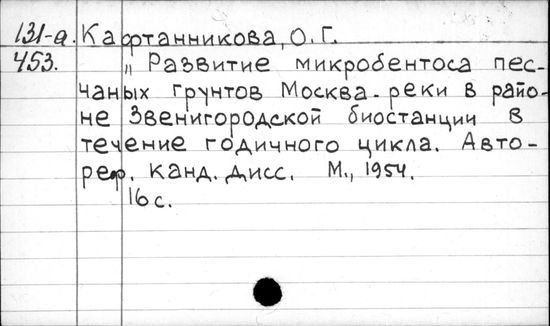 131-а. Кафтанникова, О. Г.
453. „ Развитие микробентоса пес-
чаных грунтов Москва-реки в райо-
не Звенигородской биостанции в
течение годичного цикла. Авто-
реф. канд. дисс. М., 1954.
16 с.